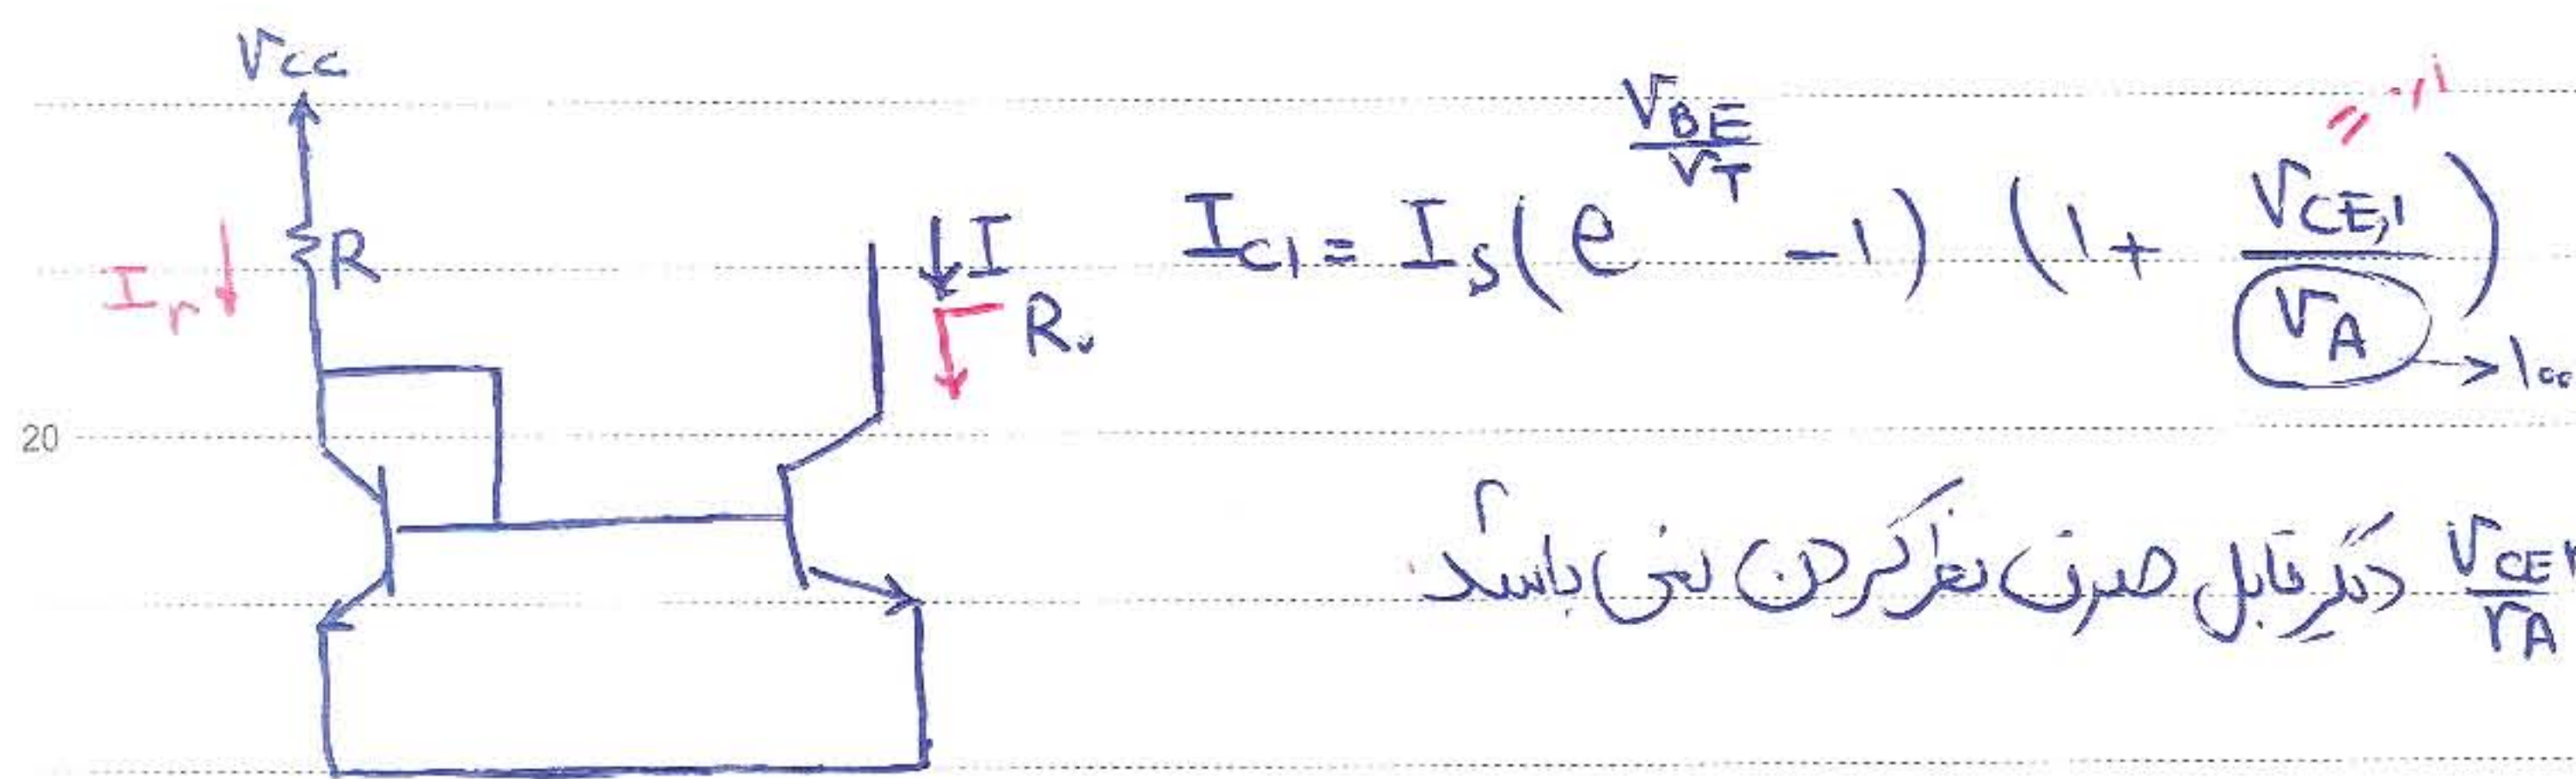 Vcc
Ir
R
I
R۰
I_C1 = I_S ( e^(V_BE / V_T) − 1 ) ( 1 + V_CE,1 / V_A )
→ 100
20
V_CE۲ / V_A دیگر قابل صرف نظر کردن نمی باشد